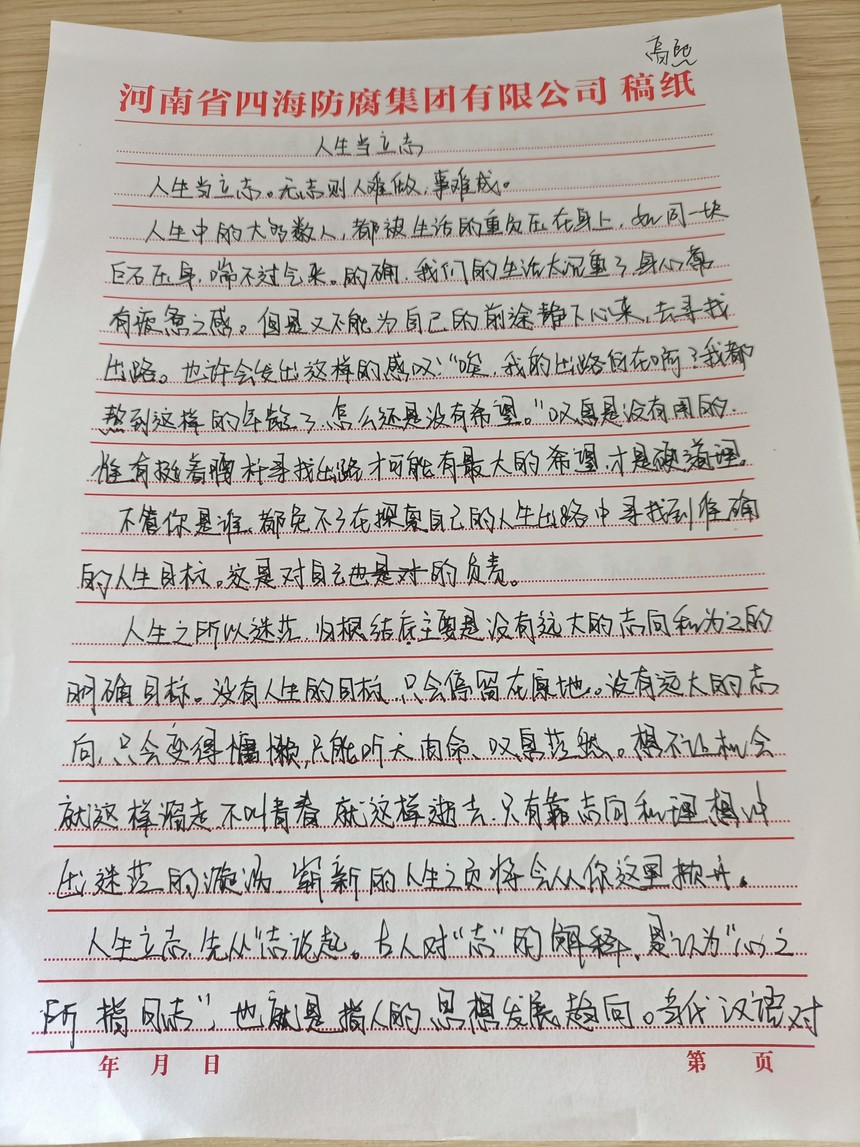 高熙
河南省四海防腐集团有限公司 稿纸
人生当立志
人生当立志。无志则人难做，事难成。
人生中的大多数人，都被生活的重负压在身上，如同一块
巨石压身，喘不过气来。的确，我们的生活太沉重了，身心都
有疲惫之感。但是又不能为自己的前途静下心来，去寻找
出路。也许会发出这样的感叹：“唉，我的出路何在啊？我都
熬到这样的年龄了，怎么还是没有希望。”叹息是没有用的，
惟有挺着腰杆寻找出路才可能有最大的希望，才是硬道理。
不管你是谁，都免不了在探索自己的人生出路中寻找到准确
的人生目标。这是对自己也是对的负责。
人生之所以迷茫，归根结底主要是没有远大的志向和为之的
明确目标。没有人生的目标，只会停留在原地。没有远大的志
向，只会变得慵懒，只能听天由命、叹息茫然。想不让机会
就这样溜走，不叫青春就这样逝去，只有靠志向和理想冲
出迷茫的漩涡，崭新的人生之页将会从你这里掀开。
人生立志，先从“志说起。古人对“志”的解释，是认为“心之
所指曰志”，也就是指人的思想发展趋向。当代汉语对
年 月 日 第 页